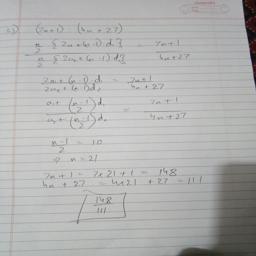 (7n+1) (4n+27)
n/2 {2a+(n-1)d} = 7n+1
n/2 {2a₂+(n-1)d} 4n+27
2a+(n-1)d = 7n+1
2a₂+(n-1)d₂ 4n+27
a₁+(n-1/2)d₁ = 7n+1
a₂+(n-1/2)d₂ 4n+27
n-1/2 = 10
⇒ n=21
7n+1 = 7×21+1 = 148
4n+27 = 4×21+27 = 111
148
111